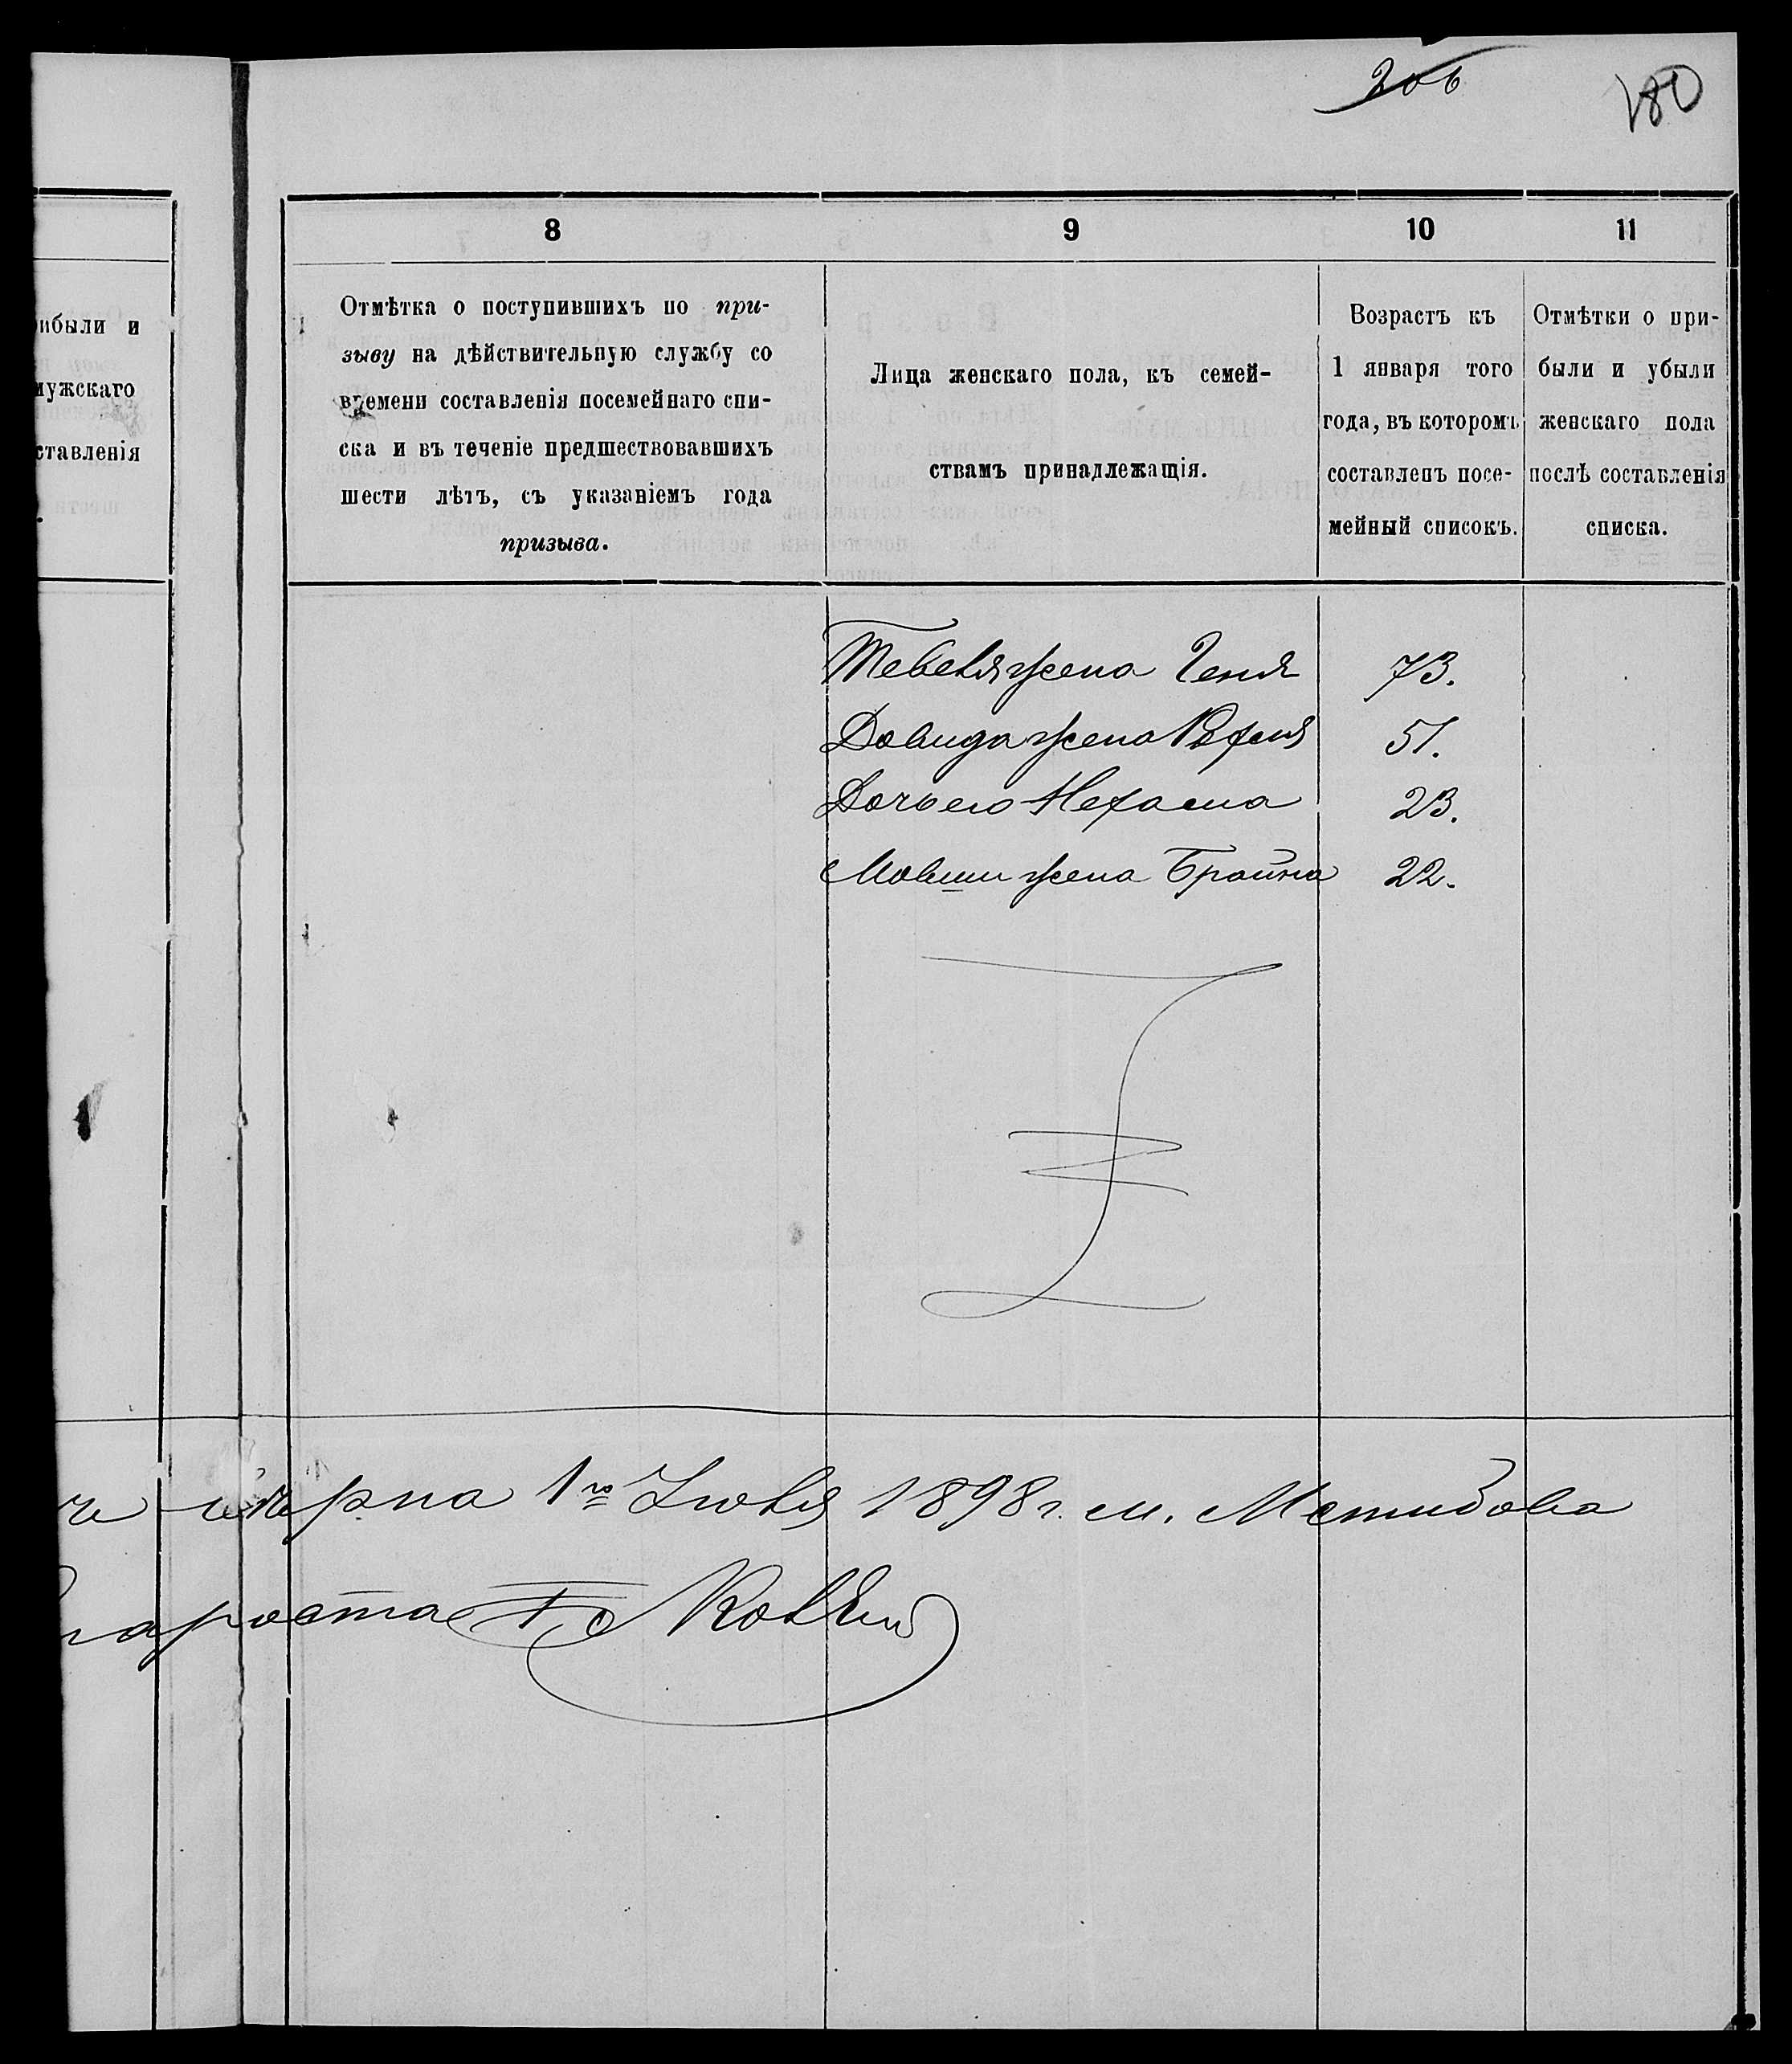 206
180
8
9
10
11
ибыли и
мужскаго
ставленія
Отмѣтка о поступившихъ по при-
зыву на дѣйствительную службу со
времени составленія посемейнаго спи-
ска и въ теченіе предшествовавшихъ
шести лѣтъ, съ указаніемъ года
призыва.
Лица женскаго пола, къ семей-
ствамъ принадлежащія.
Возрастъ къ
1 января того
года, въ которомъ
составленъ посе-
мейный списокъ.
Отмѣтки о при-
были и убыли
женскаго пола
послѣ составленія
списка.
Тевеля жена Геня 73.
Довида жена 51.
Дочь его Нехама 23.
Мовши жена Брайна 22.
вѣрна 1го Іюля 1898 г. м. Мстибова
староста